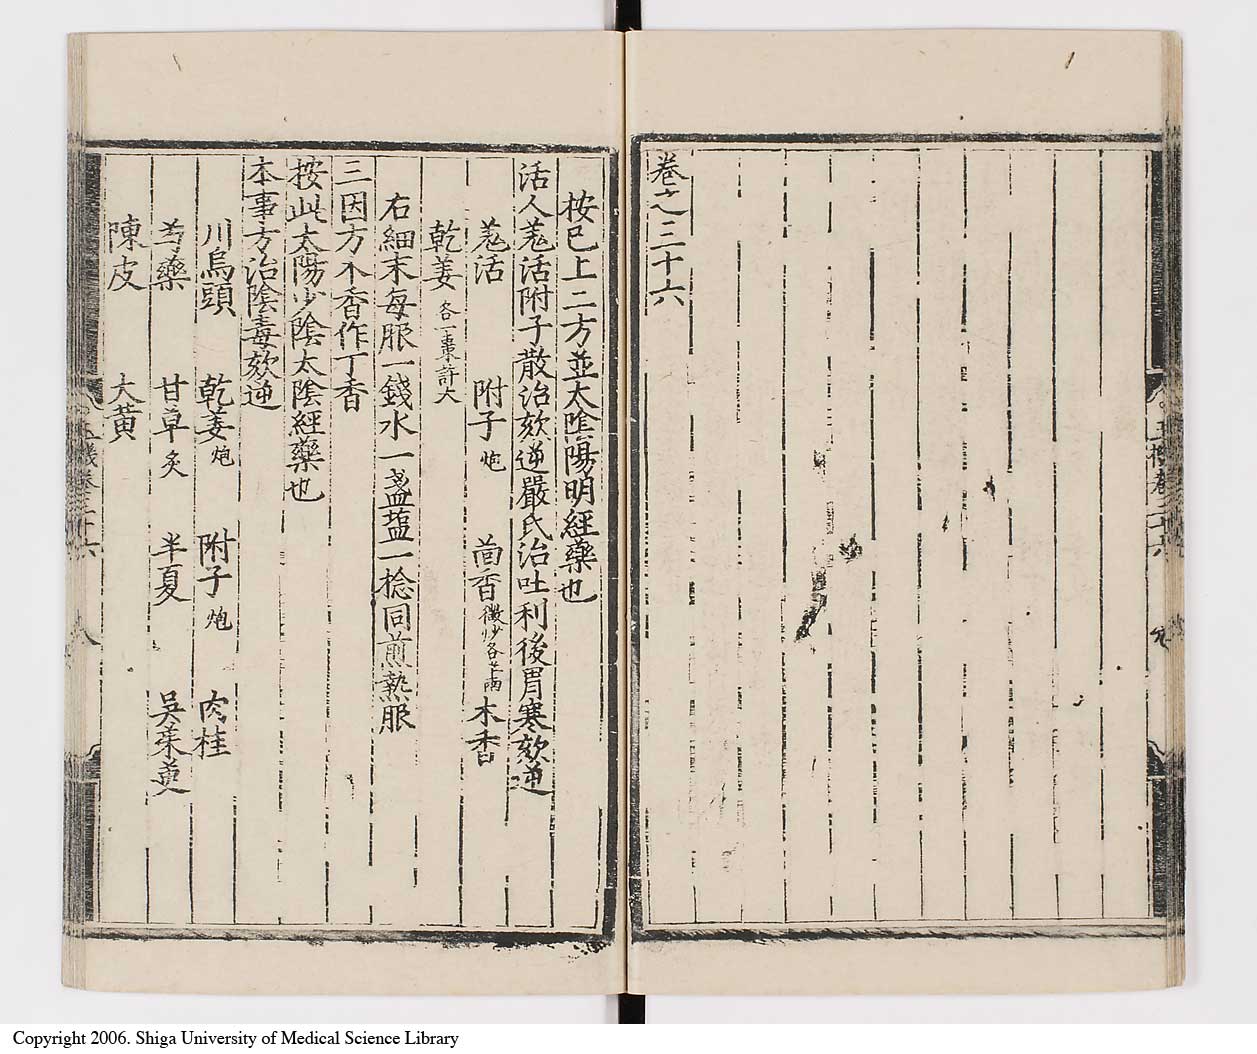 卷之三十六
按已上二方並太陰陽明經藥也
活人羗活附子散治欬逆嚴氏治吐利後胃寒欬逆
羗活　附子炮　茴香微炒各半兩　木香
乾姜各一棗許大
右細末每服一錢水一盞塩一捻同煎熟服
三因方木香作丁香
按此太陽少陰太陰經藥也
本事方治陰毒欬逆
川烏頭　乾姜炮　附子炮　肉桂
芍藥　甘草炙　半夏　吳茱萸
陳皮　大黃
Copyright 2006. Shiga University of Medical Science Library